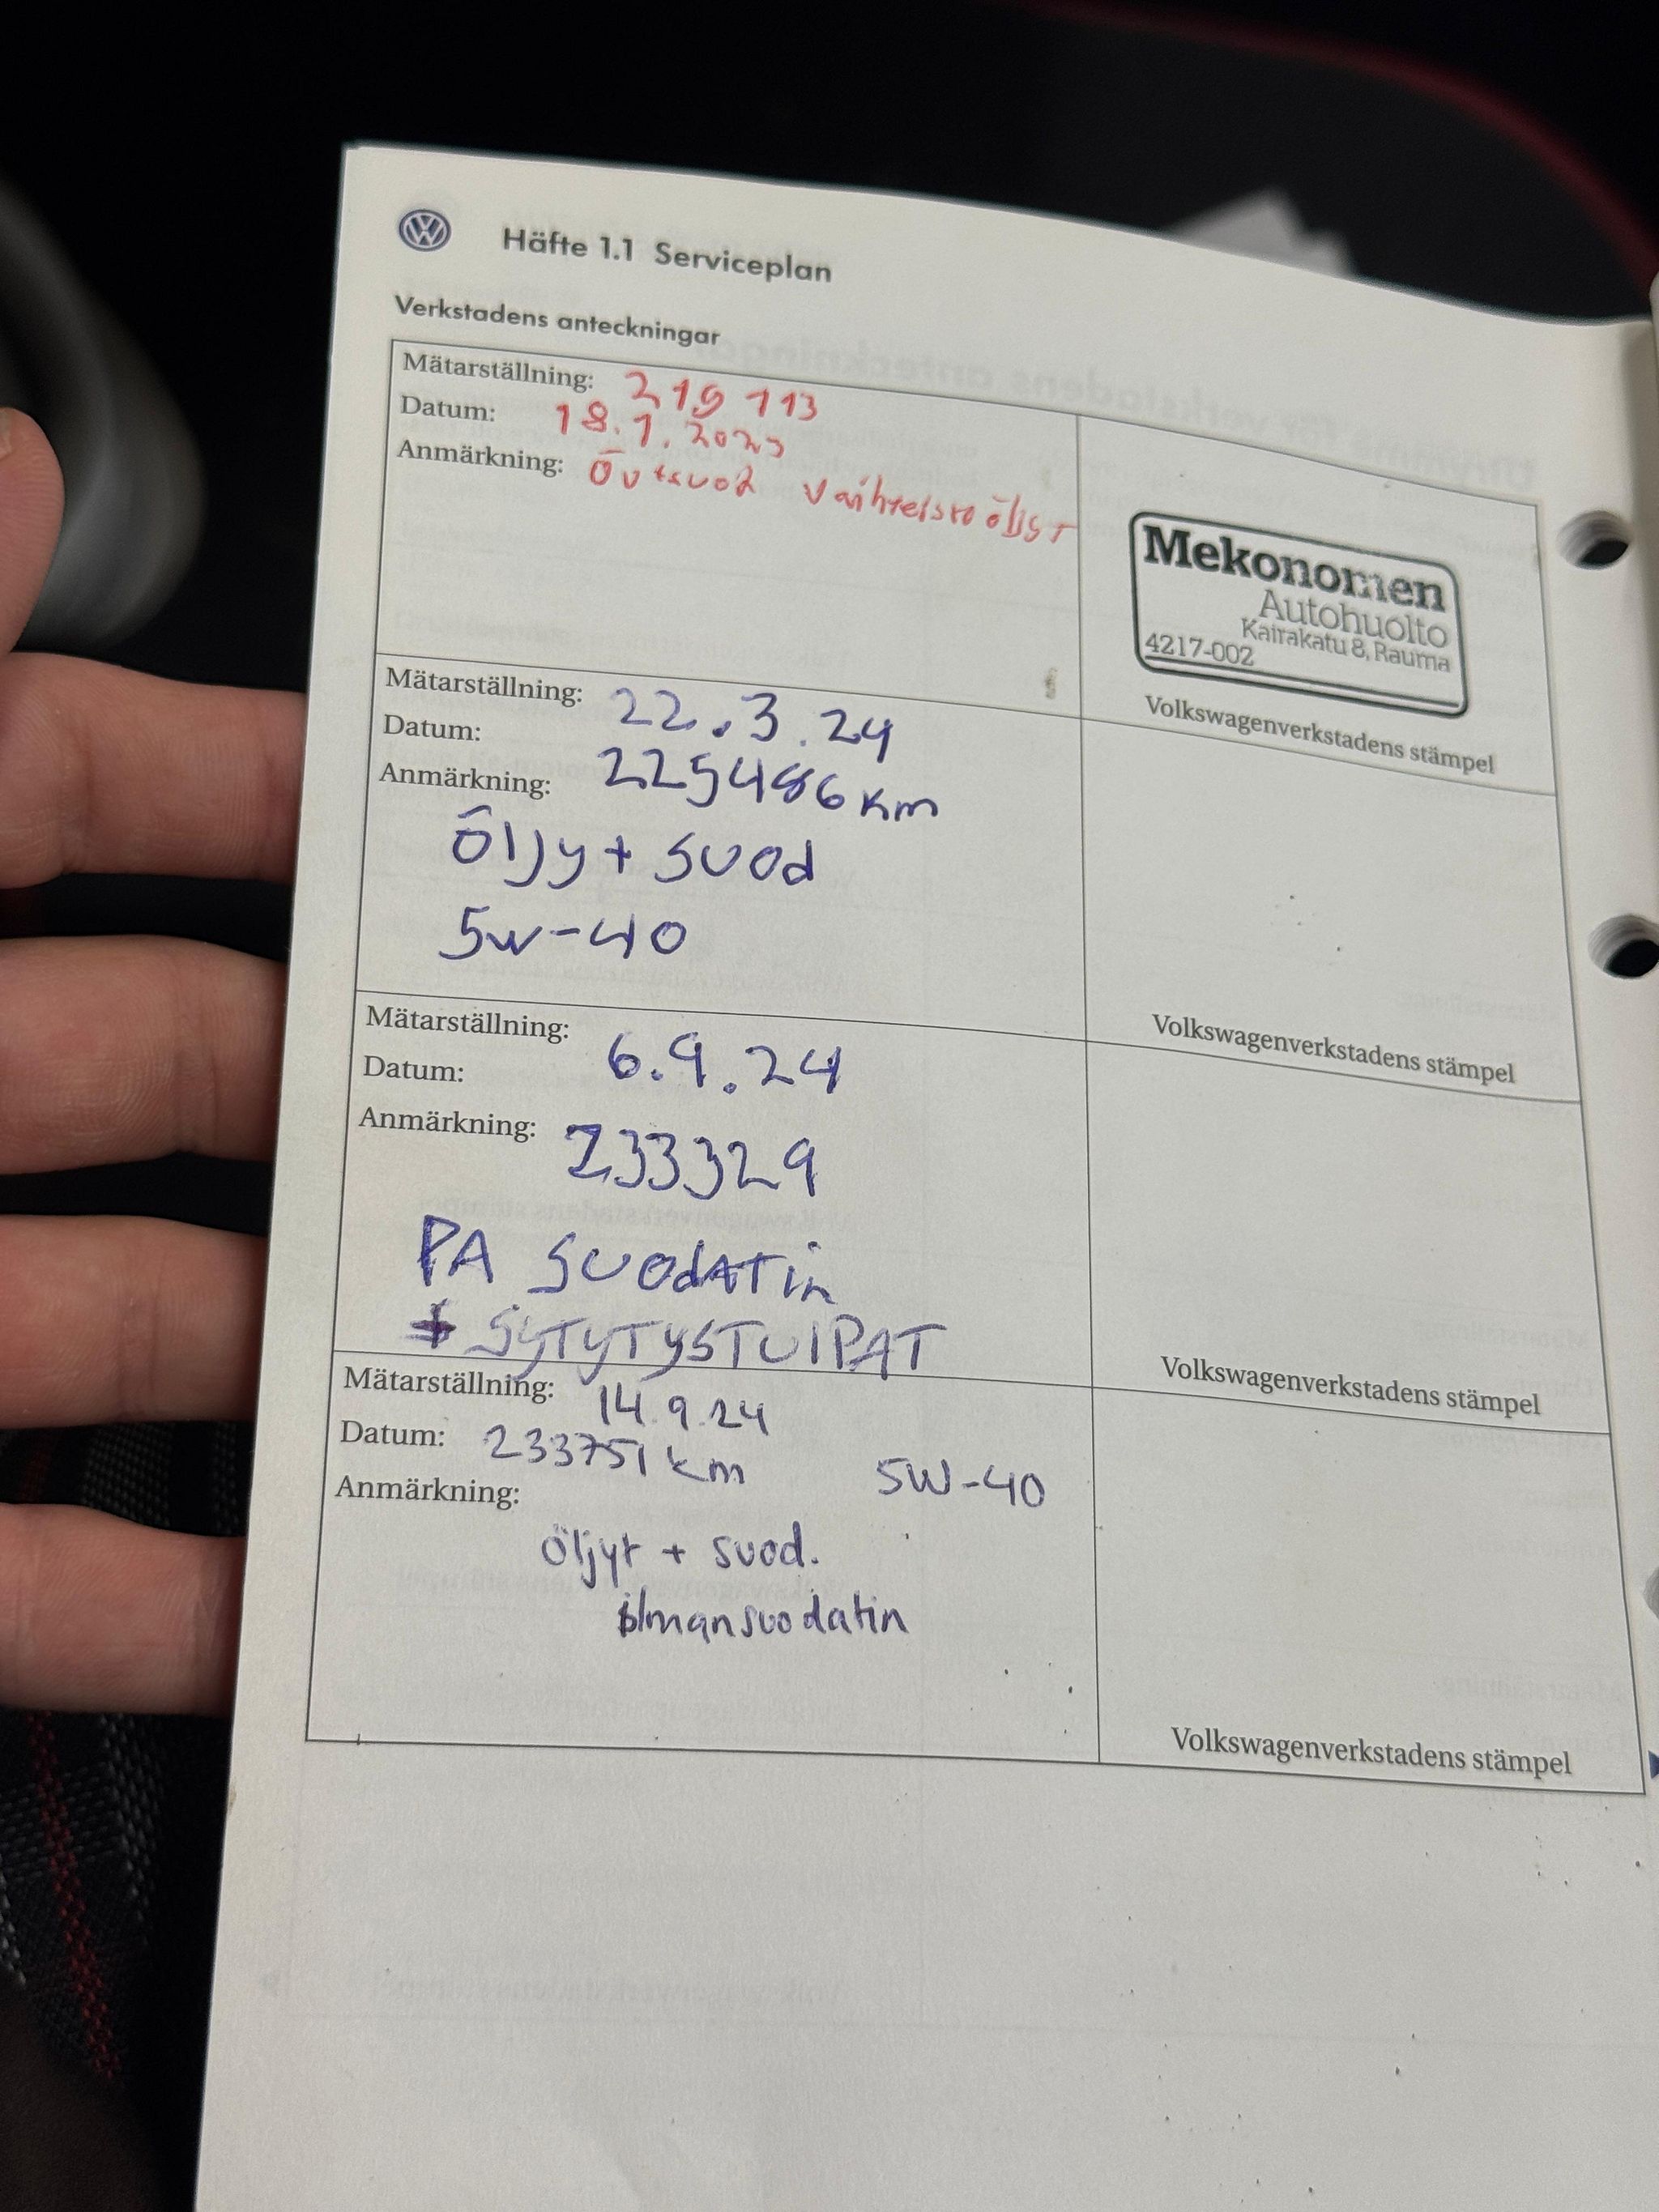 Häfte 1.1 Serviceplan
Verkstadens anteckningar
Mätarställning: 219 113
Datum: 18.1.2023
Anmärkning: Öv+suod vaihteisto öljyt
Mekonomen
Autohuolto
Kairakatu 8, Rauma
4217-002
Volkswagenverkstadens stämpel
Mätarställning: 22.3.24
Datum:
Anmärkning: 225486 km
Öljy + suod
5w-40
Volkswagenverkstadens stämpel
Mätarställning: 6.9.24
Datum:
Anmärkning: 233329
PA SUOdATin
+ SyTyTySTUlPAT
Volkswagenverkstadens stämpel
Mätarställning: 14.9.24
Datum: 233751 km 5W-40
Anmärkning:
Öljyt + suod.
ilmansuodatin
Volkswagenverkstadens stämpel